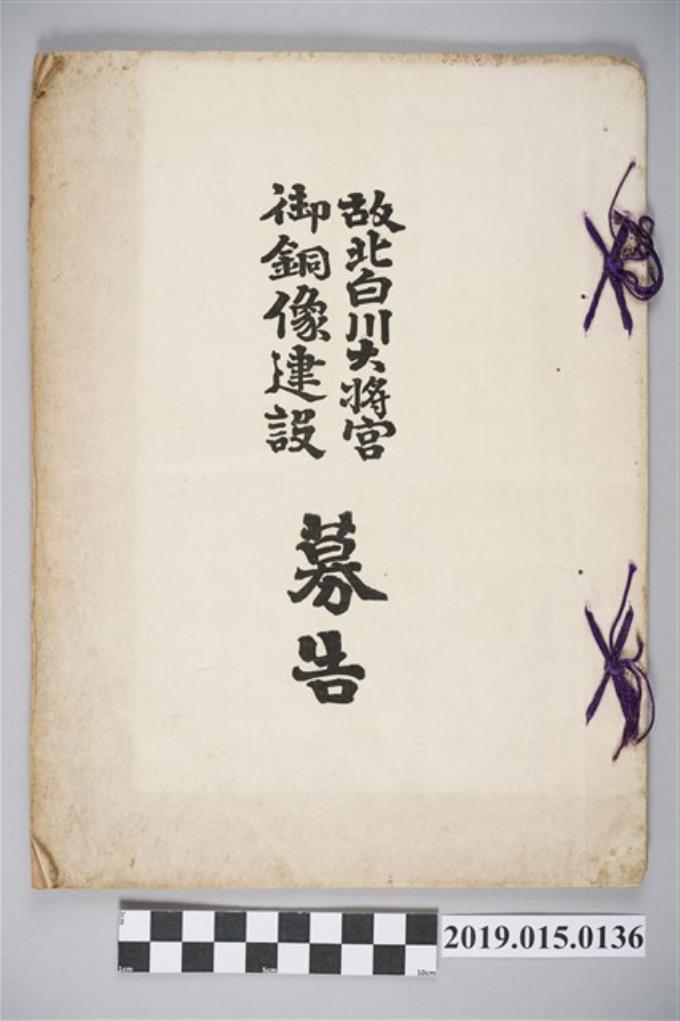 故北白川大将宮
御銅像建設
募告
2019.015.0136
1cm
5cm
10cm